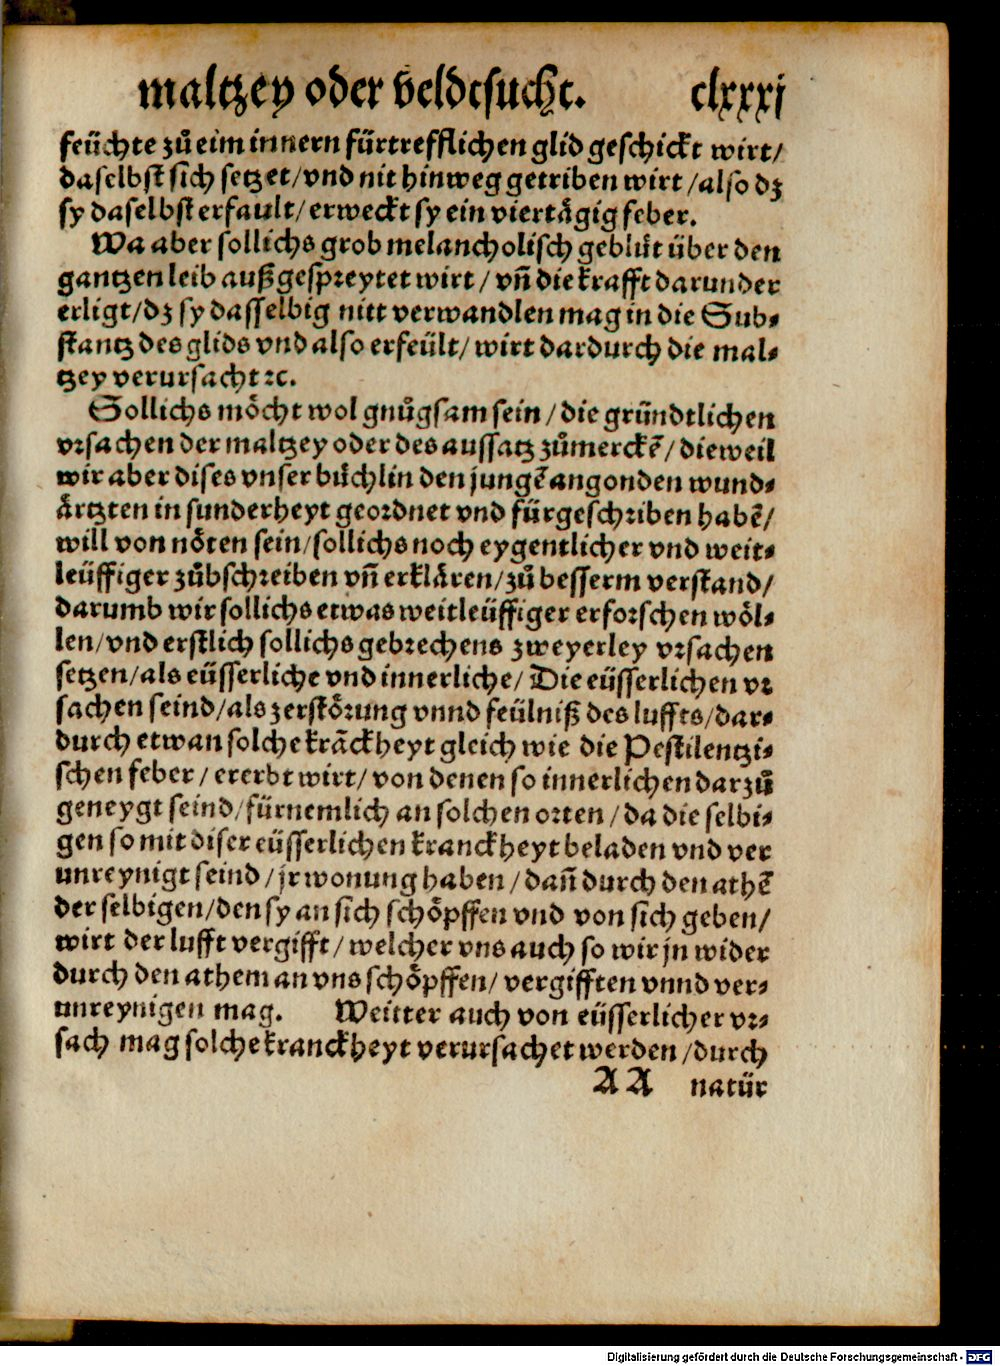 maltzey oder veldtsucht. clxxxj
feüchte zů eim innern fürtrefflichen glid geschickt wirt/
daselbst sich setzet/vnd nit hinweg getriben wirt/also dz
sy daselbst erfault/erweckt sy ein viertågig feber.
Wa aber sollichs grob melancholisch geblüt über den
gantzen leib außgespreytet wirt/vn̄ die krafft darunder
erligt/dz sy dasselbig nitt verwandlen mag in die Sub⸗
stantz des glids vnd also erfeült/wirt dardurch die mal⸗
tzey verursacht ꝛc.
Sollichs möcht wol gnůgsam sein/die gründtlichen
vrsachen der maltzey oder des aussatz zůmerckē/dieweil
wir aber dises vnser büchlin den jungē angonden wund⸗
årtzten in sunderheyt geordnet vnd fürgeschriben habē/
will von nöten sein/sollichs noch eygentlicher vnd weit⸗
leüffiger zůbschreiben vn̄ erklåren/zů besserm verstand/
darumb wir sollichs etwas weitleüffiger erforschen wöl⸗
len/vnd erstlich sollichs gebrechens zweyerley vrsachen
setzen/als eüsserliche vnd innerliche/Die eüsserlichen vr
sachen seind/als zerstörung vnnd feülniß des luffts/dar⸗
durch etwan solche krāckheyt gleich wie die Pestilentzi⸗
schen feber/ererbt wirt/von denen so innerlichen darzů
geneygt seind/fürnemlich an solchen orten/da die selbi⸗
gen so mit diser eüsserlichen kranckheyt beladen vnd ver
unreynigt seind/jr wonung haben/dan̄ durch den athē
der selbigen/den sy an sich schöpffen vnd von sich geben/
wirt der lufft vergifft/welcher vns auch so wir jn wider
durch den athem an vns schöpffen/vergifften vnnd ver⸗
unreynigen mag. Weitter auch von eüsserlicher vr⸗
sach mag solche kranckheyt verursachet werden/durch
AA natür
Digitalisierung gefördert durch die Deutsche Forschungsgemeinschaft - DFG